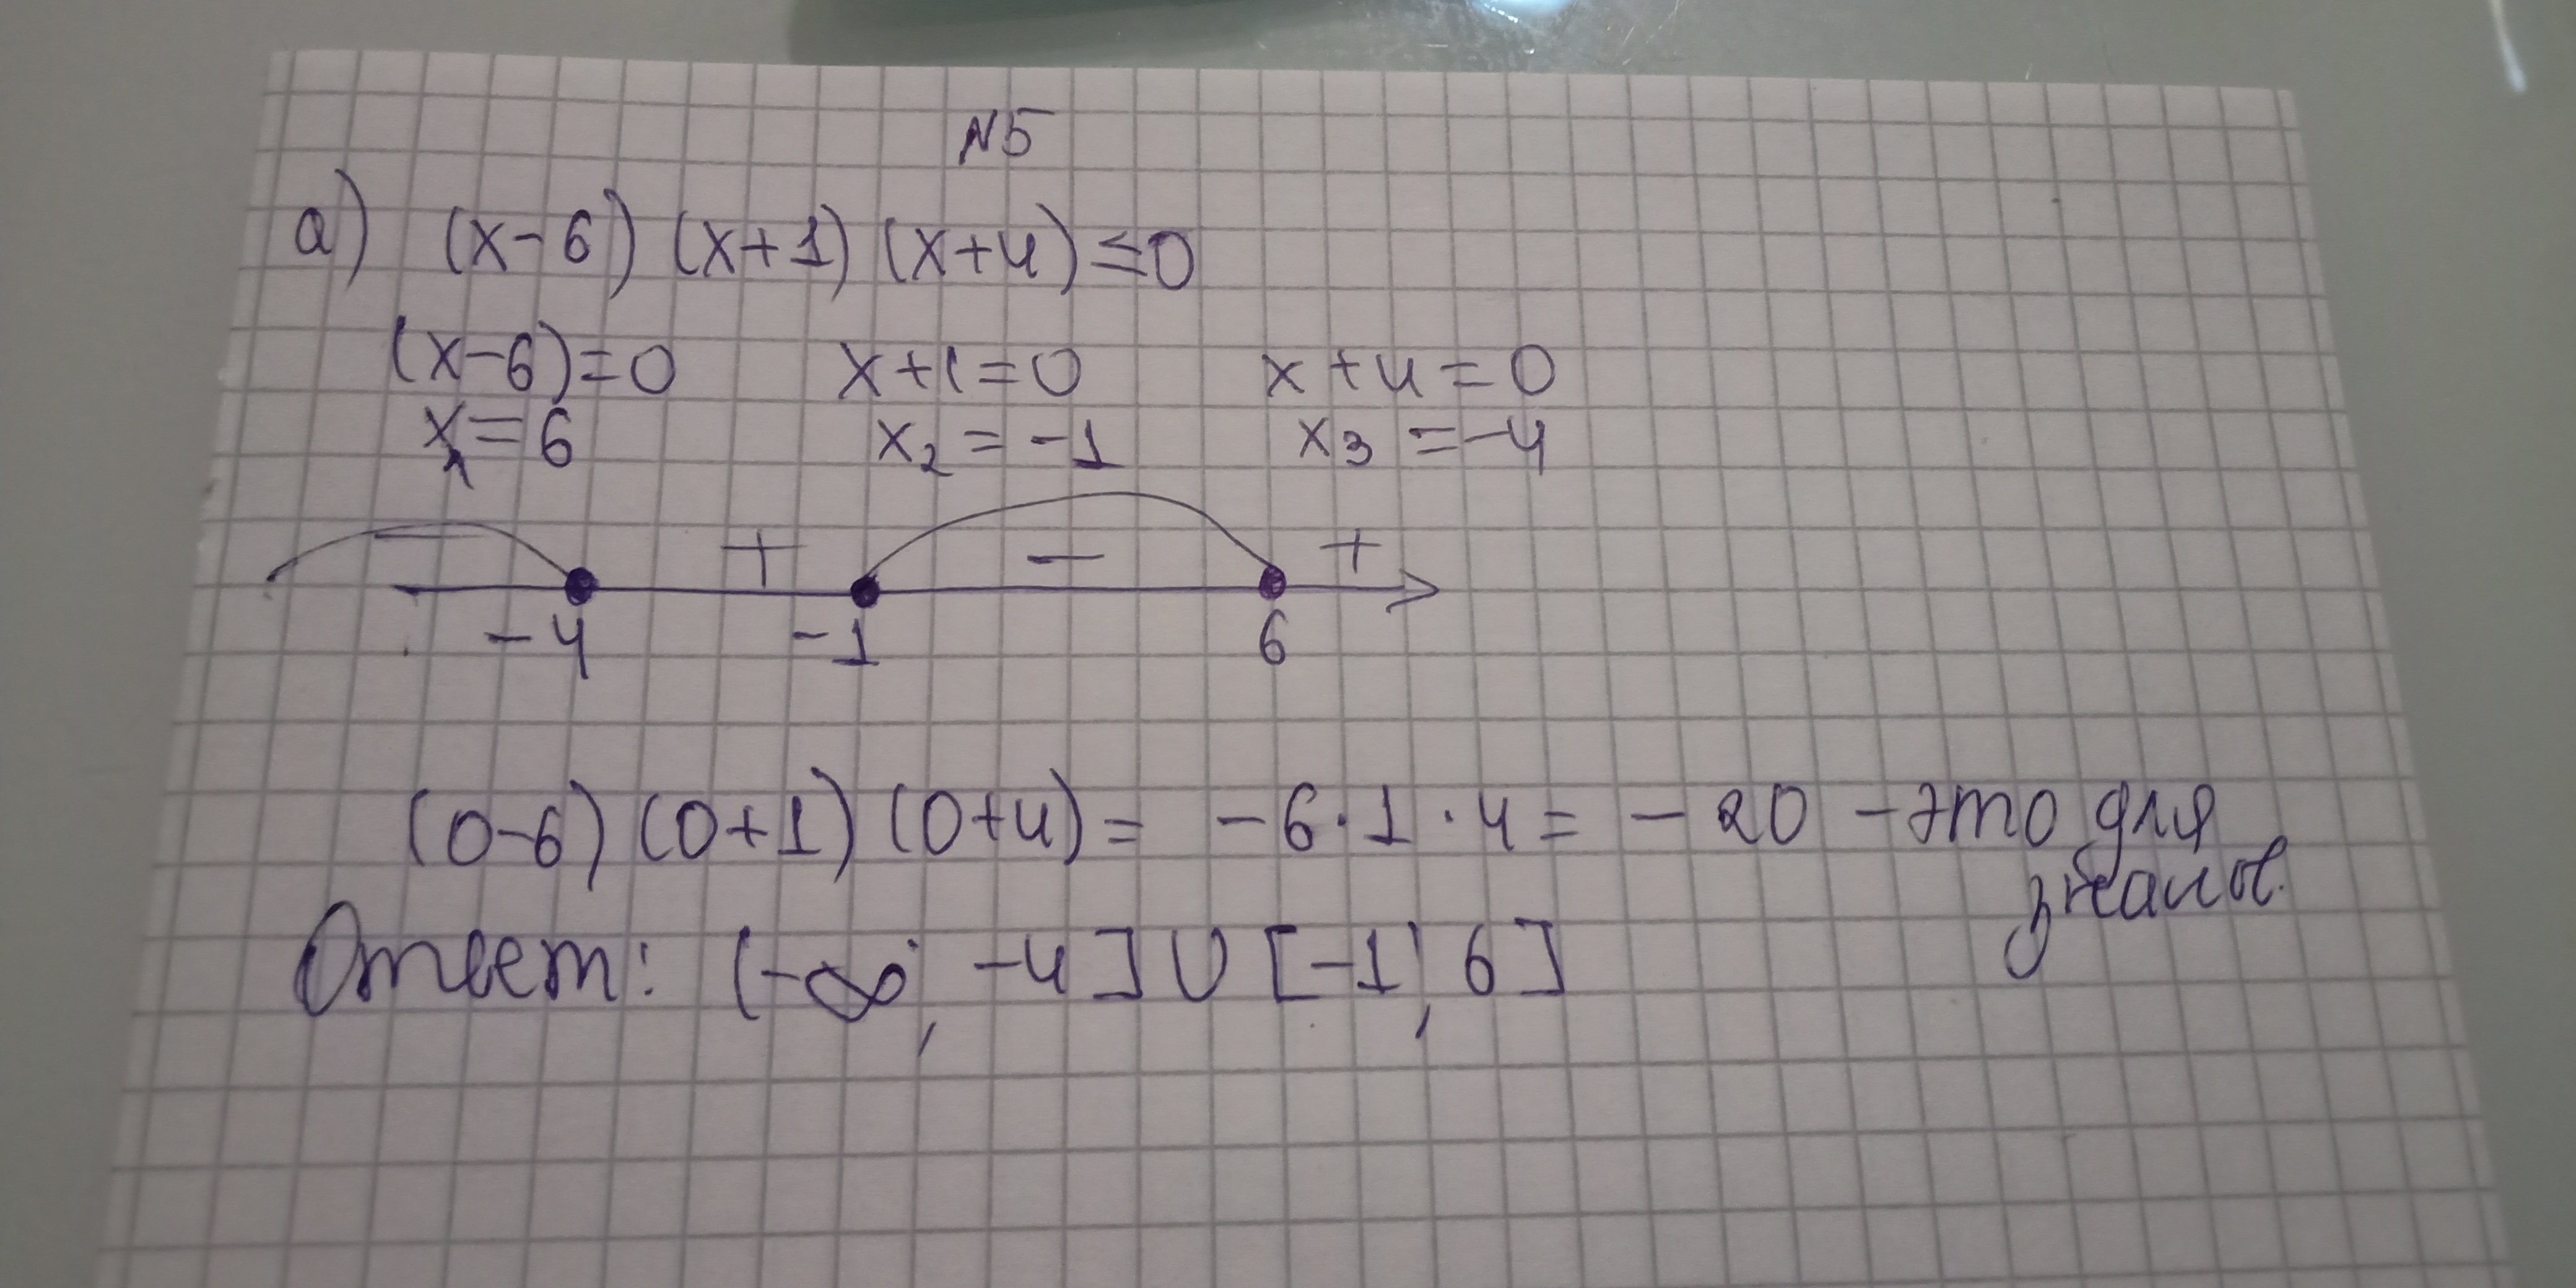 N5
а) (x-6) (x+1) (x+4) ≤ 0
(x-6)=0 x+1=0 x+4=0
x₁=6 x₂ = -1 x₃ = -4
− + − +
-4 -1 6
(0-6) (0+1) (0+4) = -6·1·4 = -20 - это для
знаков.
Ответ: (-∞; -4] ∪ [-1; 6]